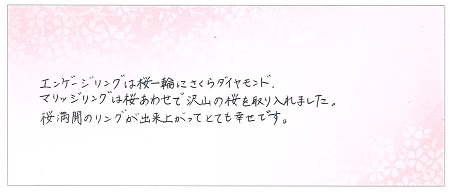 エンゲージリングは桜一輪にさくらダイヤモンド.
マリッジリングは桜あわせで沢山の桜を取り入れました。
桜満開のリングが出来上がってとても幸せです。